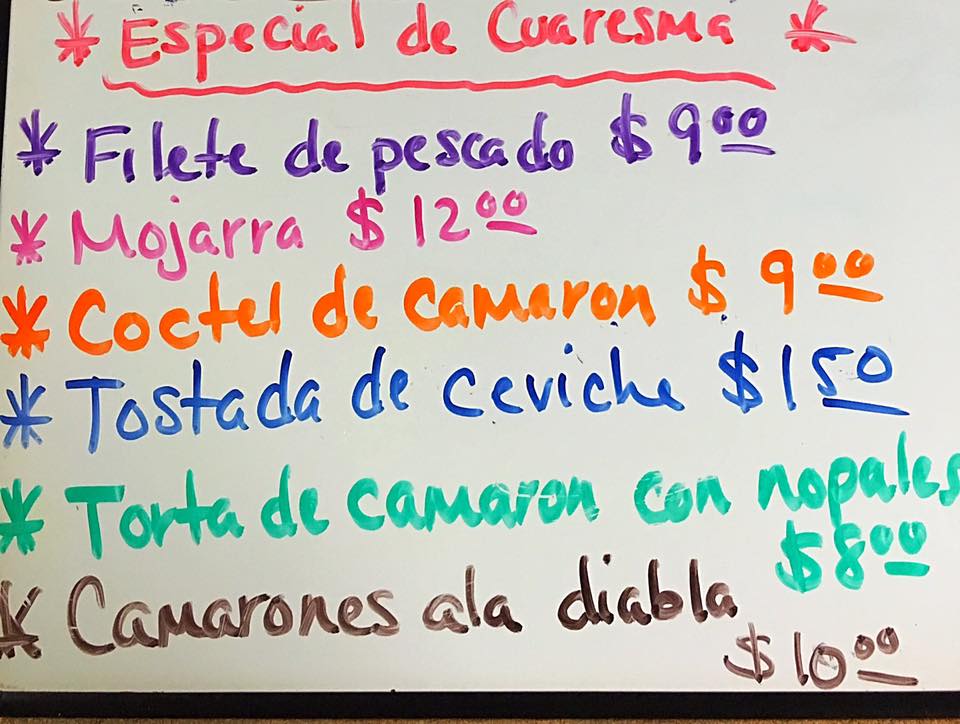 * Especial de Cuaresma *
* Filete de pescado $9.00
* Mojarra $12.00
* Coctel de camaron $9.00
* Tostada de ceviche $1.50
* Torta de camaron con nopales
$8.00
* Camarones ala diabla
$10.00